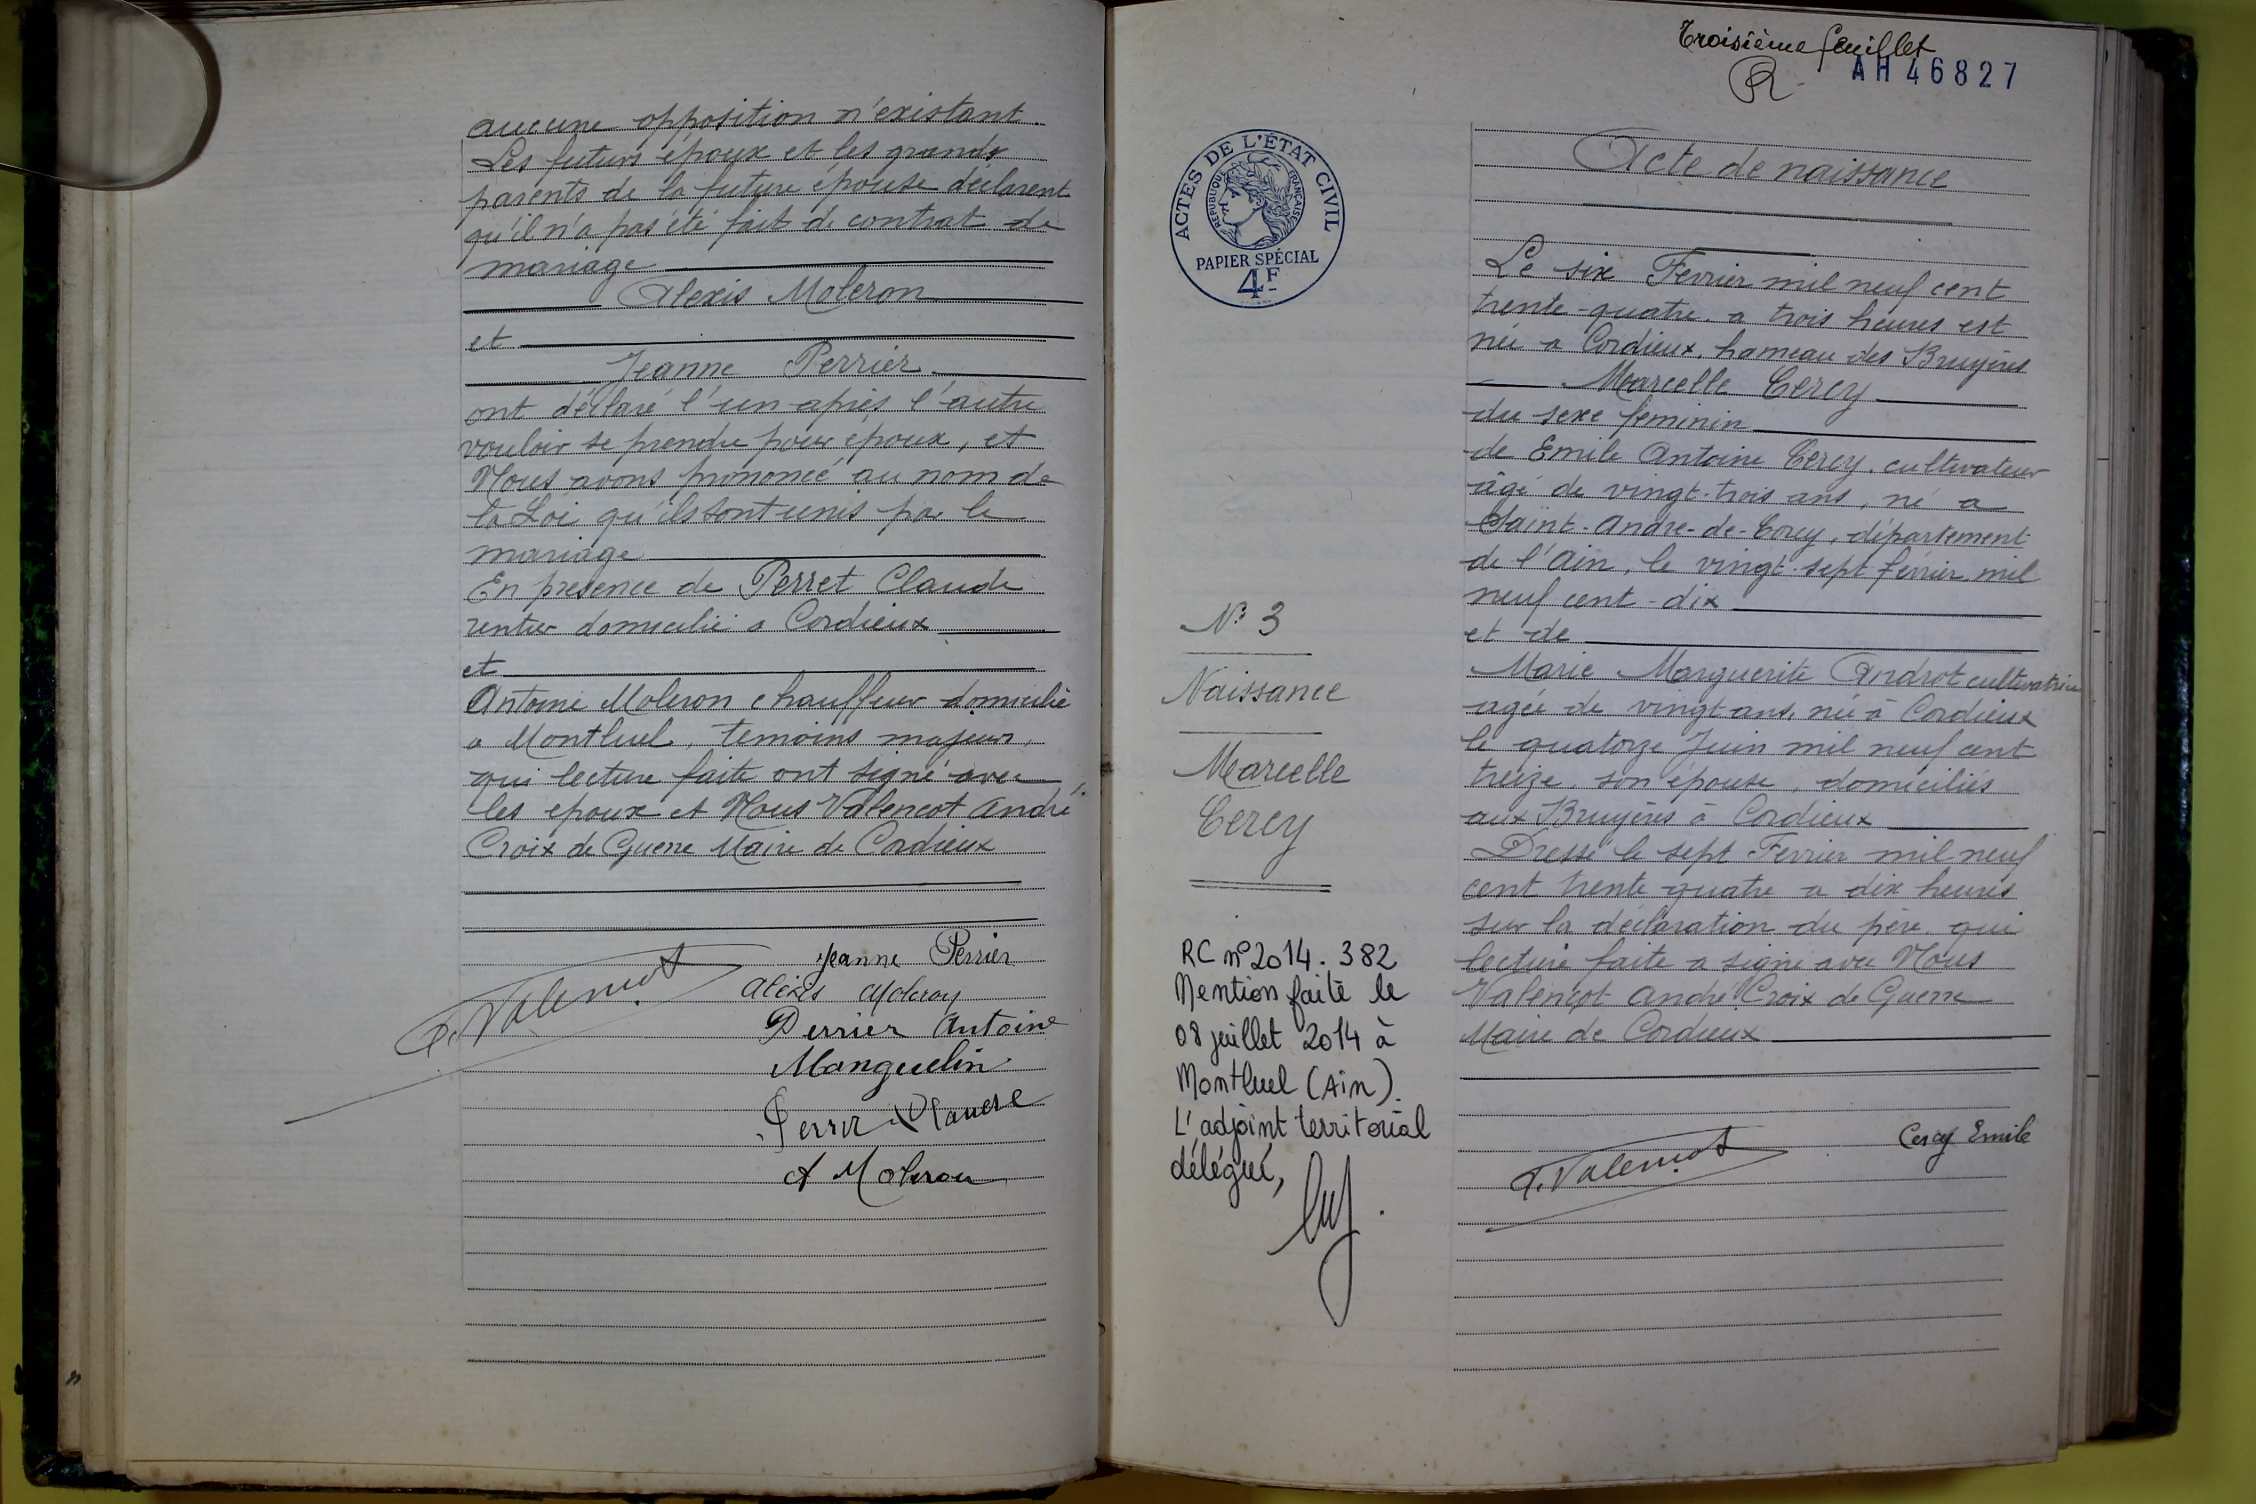 aucune opposition n'existant.
Les futurs époux et les grands
parents de la future épouse déclarent
qu'il n'a pas été fait de contrat de
mariage
Alexis Moleron
et
Jeanne Perrier
ont déclaré l'un après l'autre
vouloir se prendre pour époux, et
Nous avons prononcé au nom de
la Loi qu'ils sont unis par le
mariage
En présence de Perret Claude
rentier domicilié a Cordieux
et
Antoine Moleron chauffeur domicilié
a Montluel, témoins majeurs,
qui lecture faite ont signé avec
les epoux et Nous Valencot André
Croix de Guerre Maire de Cordieux
Jeanne Perrier
A. Valencot
Alexis Moleron
Perrier Antoine
Manguelin
Perret Claude
A Moleron
Troisième feuillet
AH 46827
ACTES DE L'ÉTAT CIVIL
RÉPUBLIQUE FRANÇAISE
PAPIER SPÉCIAL
4F
Acte de naissance
Le six Fevrier mil neuf cent
trente-quatre. a trois heures est
née a Cordieux, hameau des Bruyères
Marcelle Cercy
du sexe feminin
de Emile Antoine Cercy. cultivateur
âgé de vingt-trois ans, né a
Saint-André-de-Corcy, département
de l'Ain, le vingt-sept février mil
neuf cent-dix
et de
Marie Marguerite Androt cultivatrice
agée de vingt ans, née à Cordieux
le quatorze Juin mil neuf cent
treize. son épouse, domiciliés
aux Bruyères à Cordieux
Dressé le sept Fevrier mil neuf
cent trente quatre a dix heures
sur la déclaration du père qui
lecture faite a signé avec Nous
Valencot André Croix de Guerre
Maire de Cordieux
Cercy Emile
A. Valencot
N° 3
Naissance
Marcelle
Cercy
RC n°2014.382
Mention faite le
08 juillet 2014 à
Montluel (Ain).
L'adjoint territorial
délégué,